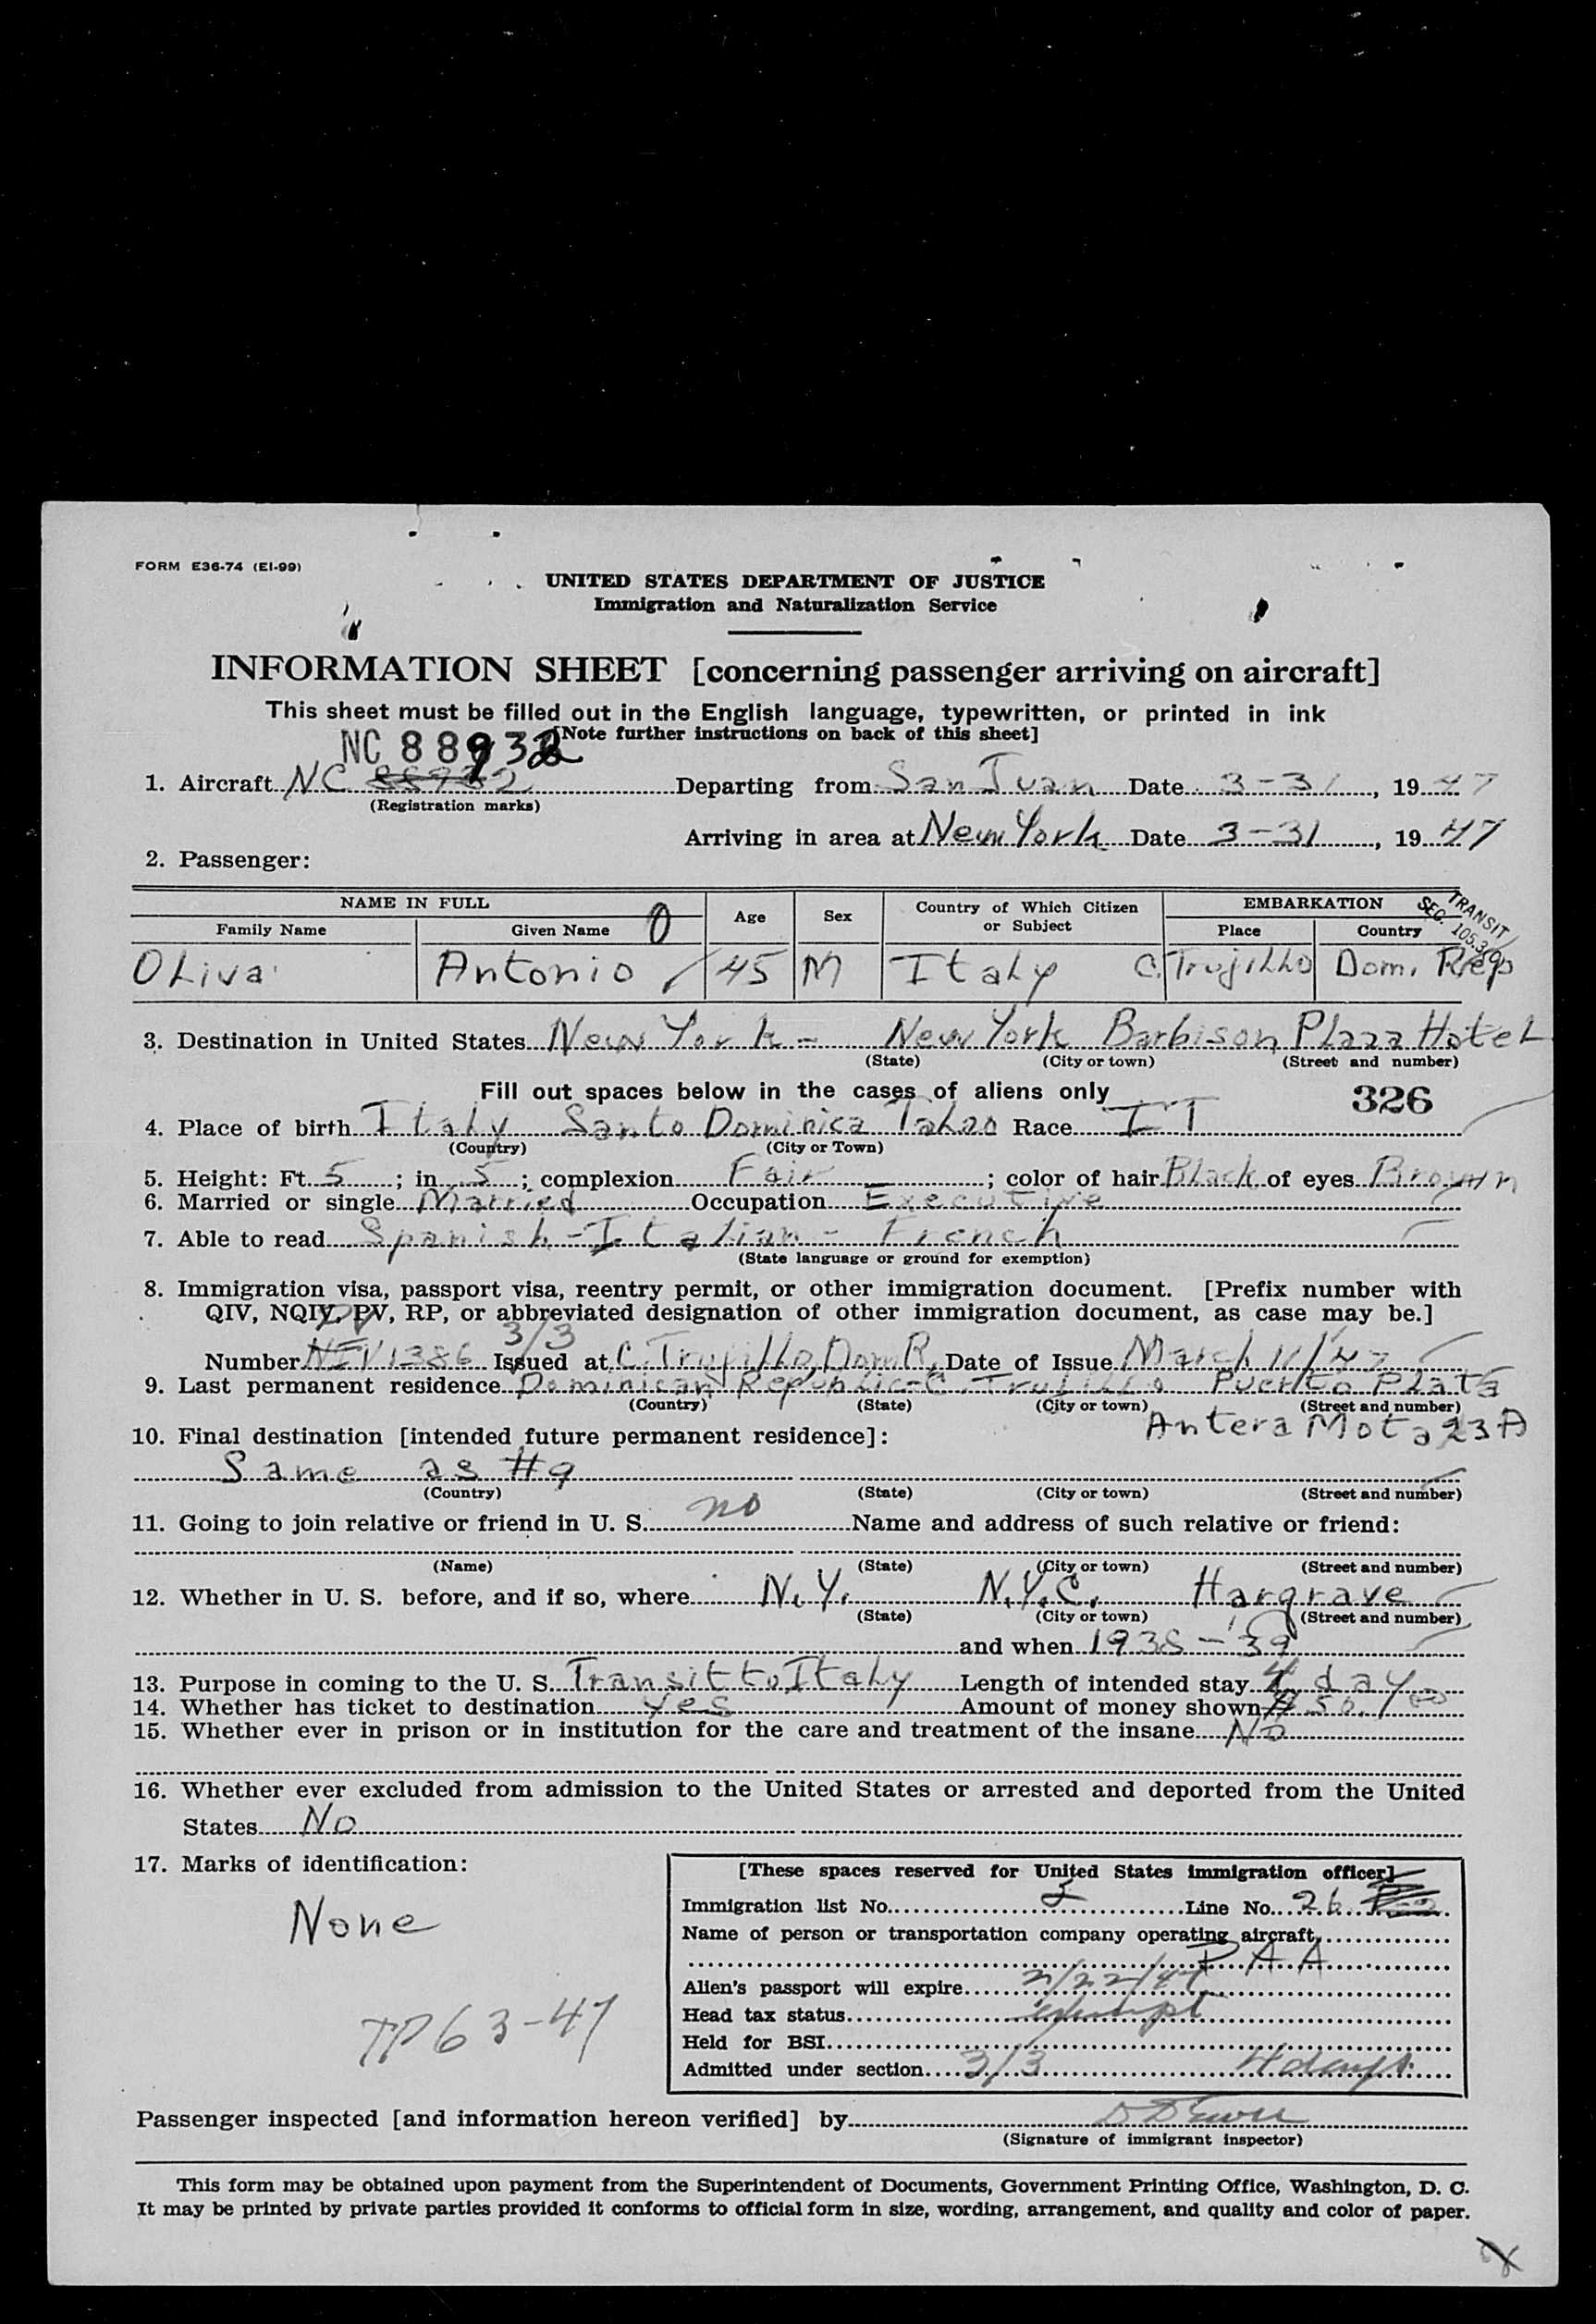 FORM E36-74 (EI-99)
UNITED STATES DEPARTMENT OF JUSTICE
Immigration and Naturalization Service
INFORMATION SHEET [concerning passenger arriving on aircraft]
This sheet must be filled out in the English language, typewritten, or printed in ink
[Note further instructions on back of this sheet]
NC 88932
1. Aircraft NC Departing from San Juan Date 3-31, 1947
(Registration marks)
Arriving in area at New York Date 3-31, 1947
2. Passenger:
NAME IN FULL Age Sex Country of Which Citizen or Subject EMBARKATION TRANSIT
Family Name Given Name O Place Country SEC. 105.3
Oliva Antonio 45 M Italy C. Trujillo Dom. Rep
3. Destination in United States New York - New York Barbison Plaza Hotel
(State) (City or town) (Street and number)
Fill out spaces below in the cases of aliens only 326
4. Place of birth Italy Santo Dominica Talao Race IT
(Country) (City or Town)
5. Height: Ft. 5; in. 5; complexion Fair; color of hair Black of eyes Brown
6. Married or single Married Occupation Executive
7. Able to read Spanish - Italian - French
(State language or ground for exemption)
8. Immigration visa, passport visa, reentry permit, or other immigration document. [Prefix number with
QIV, NQIV, PV, RP, or abbreviated designation of other immigration document, as case may be.]
3/3
Number 1386 Issued at C. Trujillo, Dom R. Date of Issue March 11/47
9. Last permanent residence Dominican Republic - C. Trujillo Puerto Plata
(Country) (State) (City or town) (Street and number)
Antera Mota 23 A
10. Final destination [intended future permanent residence]:
Same as #9
(Country) (State) (City or town) (Street and number)
11. Going to join relative or friend in U. S. no Name and address of such relative or friend:
(Name) (State) (City or town) (Street and number)
12. Whether in U. S. before, and if so, where N.Y. N.Y.C. Hargrave
(State) (City or town) (Street and number)
and when 1938-'39
13. Purpose in coming to the U. S. Transit to Italy Length of intended stay 4 days
14. Whether has ticket to destination yes Amount of money shown $50.00
15. Whether ever in prison or in institution for the care and treatment of the insane No
16. Whether ever excluded from admission to the United States or arrested and deported from the United
States No
17. Marks of identification:
None
TP63-47
[These spaces reserved for United States immigration officer]
Immigration list No. Line No. 26
Name of person or transportation company operating aircraft
P A A
Alien's passport will expire
Head tax status exempt
Held for BSI
Admitted under section 3/3 4 days
Passenger inspected [and information hereon verified] by
(Signature of immigrant inspector)
This form may be obtained upon payment from the Superintendent of Documents, Government Printing Office, Washington, D. C.
It may be printed by private parties provided it conforms to official form in size, wording, arrangement, and quality and color of paper.